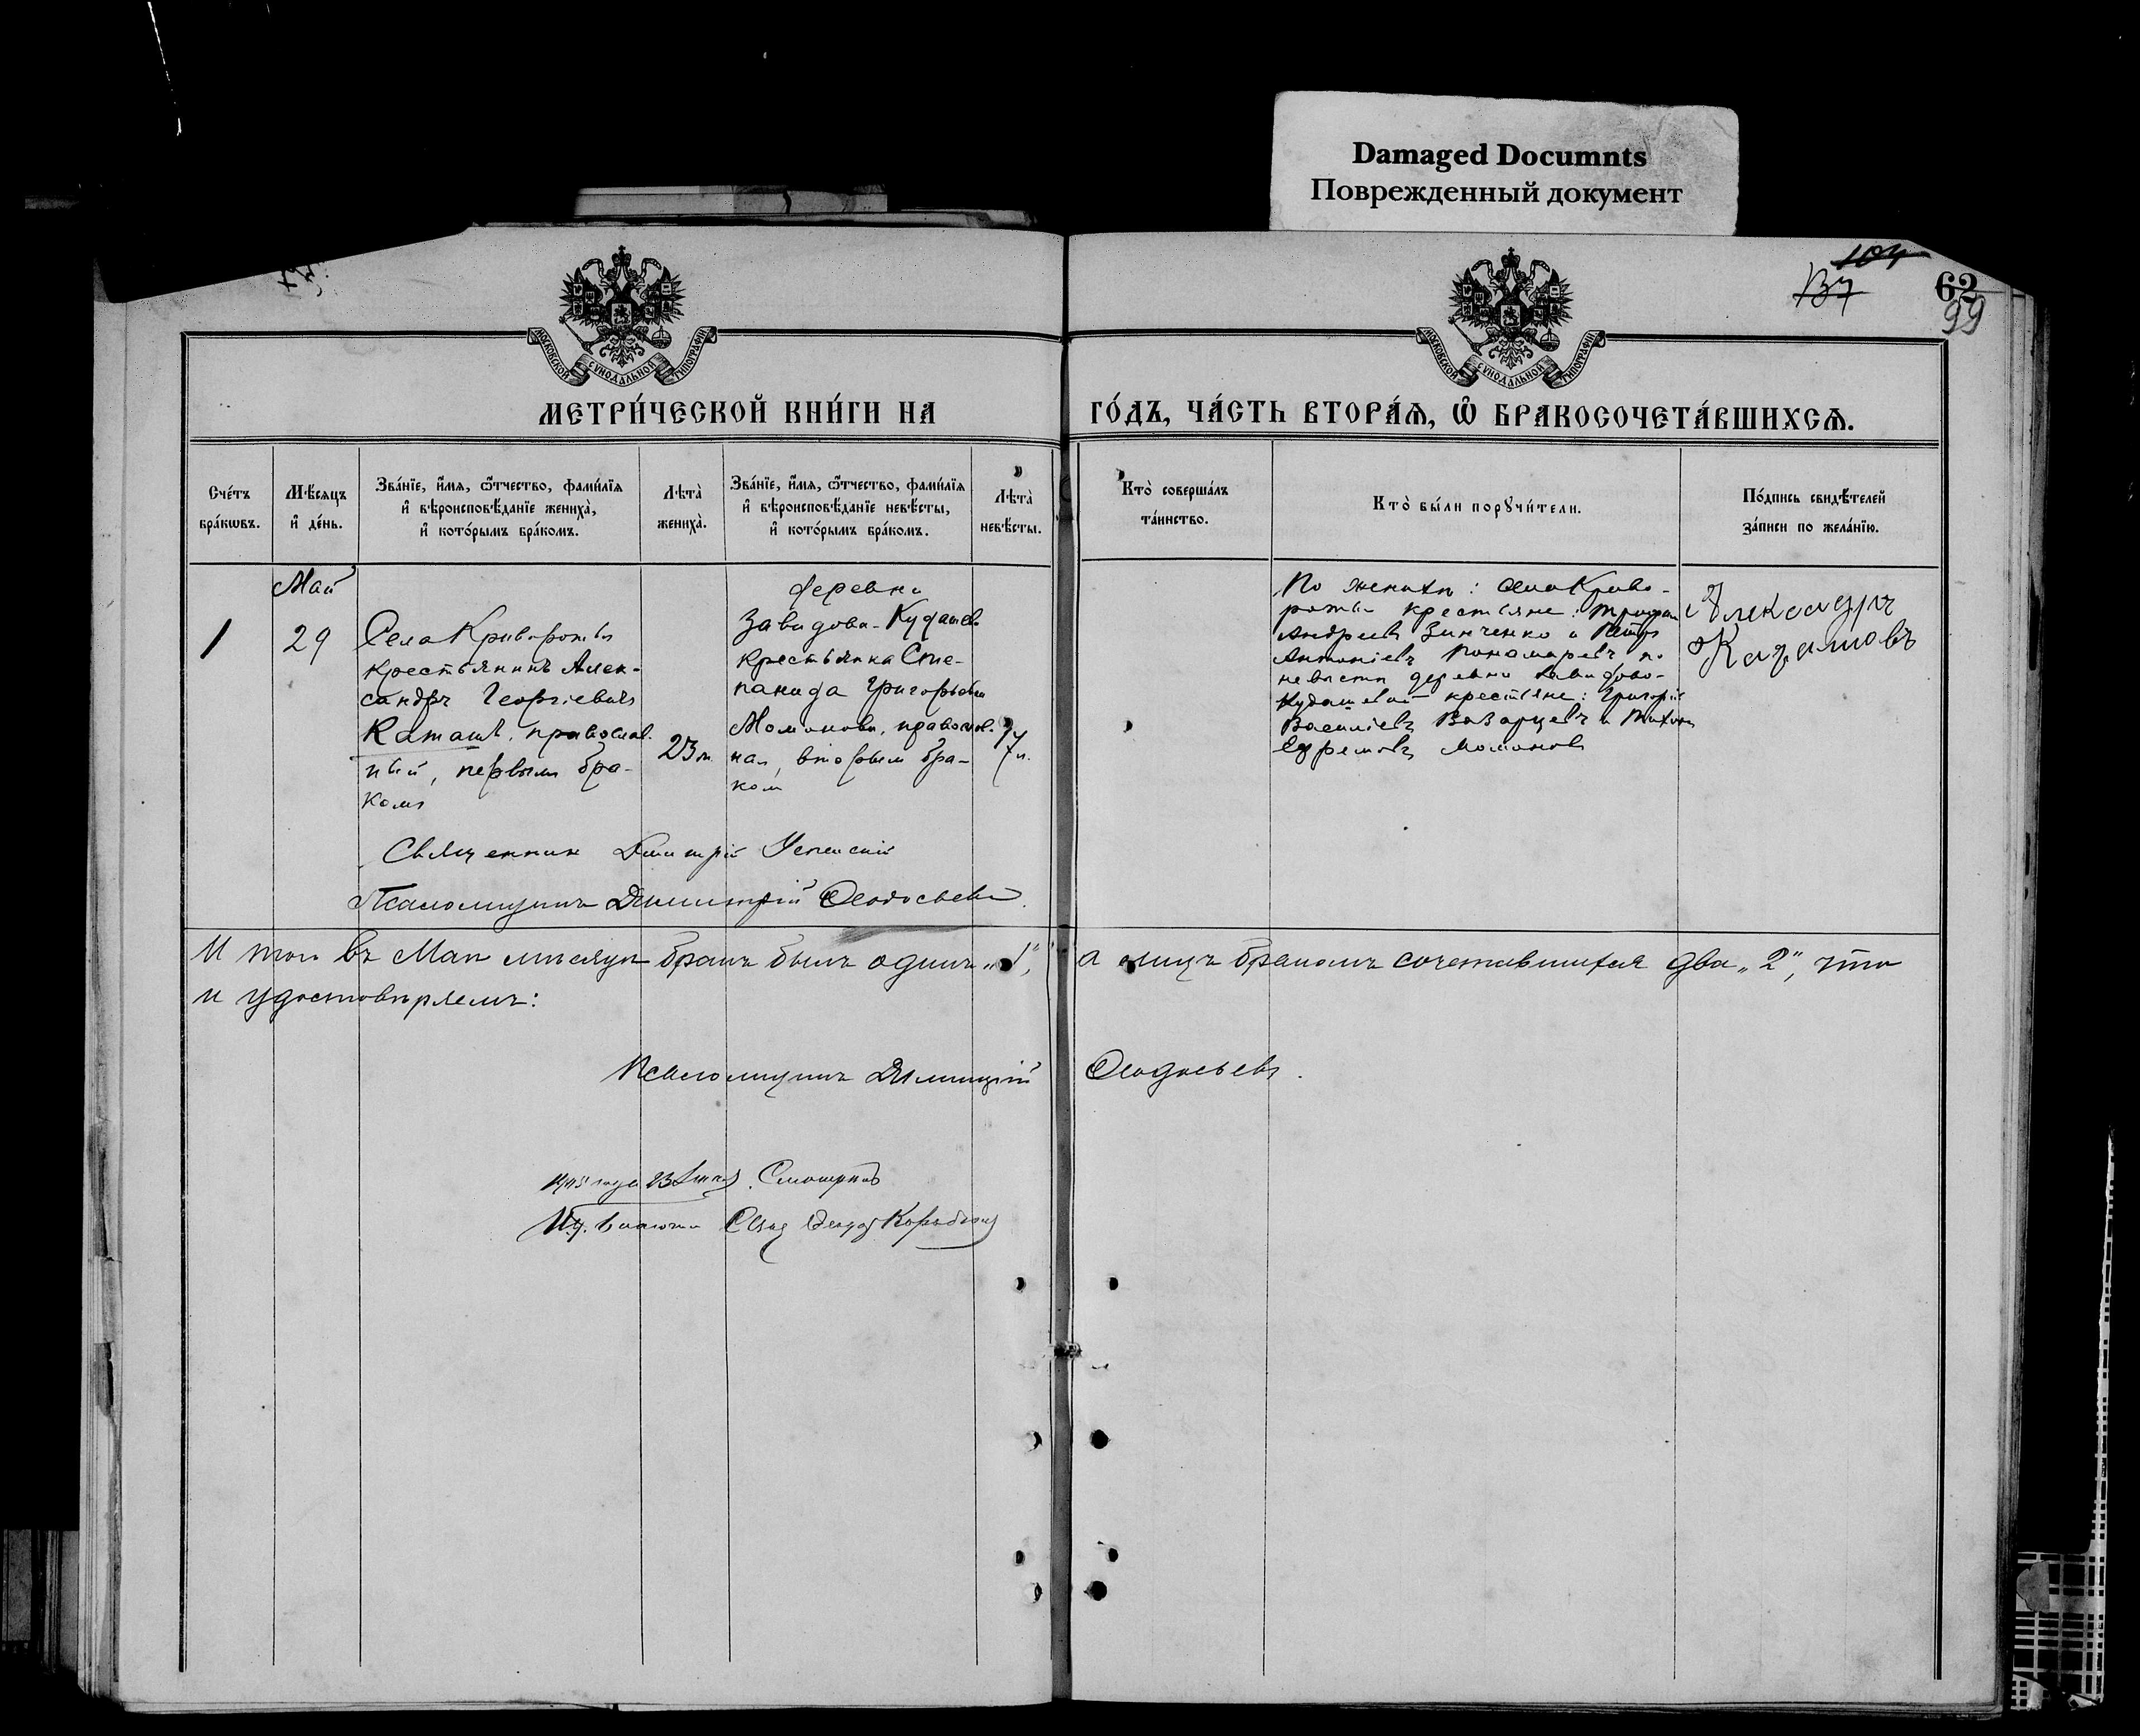 Damaged Documnts
Поврежденный документ
104
137
62
99
МОСКОВСКОЙ СУНОДАЛЬНОЙ ТИПОГРАФІИ
МОСКОВСКОЙ СУНОДАЛЬНОЙ ТИПОГРАФІИ
МЕТРИ́ЧЕСКОЙ КНИ́ГИ НА ГО́ДЪ, ЧА́СТЬ ВТОРА́Ѧ, Ѡ҆ БРАКОСОЧЕТА́ВШИХСѦ.
Сче́тъ
бра́кѡвъ.
Мѣ́сяцъ
и҆ де́нь.
Зва́нїе, и҆́мѧ, ѻ҆́тчество, фами́лїѧ
и҆ вѣроисповѣ́данїе жениха̀,
и҆ кото́рымъ бра́комъ.
Лѣта̀
жениха̀.
Зва́нїе, и҆́мѧ, ѻ҆́тчество, фами́лїѧ
и҆ вѣроисповѣ́данїе невѣ́сты,
и҆ кото́рымъ бра́комъ.
Лѣта̀
невѣ́сты.
Кто̀ соверша́лъ
та́инство.
Кто̀ бы́ли порꙋчи́тели.
По́дпись свидѣ́телей
за́писи по жела́нїю.
1
Май
29
Села Криворотья
крестьянинъ Алек-
сандръ Георгіевичъ
Каташевъ, православ-
ный, первымъ бра-
комъ
23 л.
деревни
Завидова-Кудашева
крестьянка Сте-
панида Григорьева
Момонова, православ-
ная, вторымъ бра-
ком
По женихѣ: села Криво-
ротья крестьяне: Трифон
Андреевъ Зинченко и Петръ
Антоніевъ Пономаревъ по
невѣстѣ деревни Завидово-
Кудашевой крестьяне: Григорій
Василіевъ и
Ефремовъ Момоновъ
Александръ
Священник Димитрій Успенскій
Псаломщикъ Димитрій Ѳеодосьевъ.
Итого въ Маѣ мѣсяцѣ бракъ былъ одинъ „1“, а лицъ бракомъ сочетавшихся два „2“, что
и удостовѣряемъ:
Псаломщикъ Димитрій Ѳеодосьевъ.
года 23 Смотрѣлъ